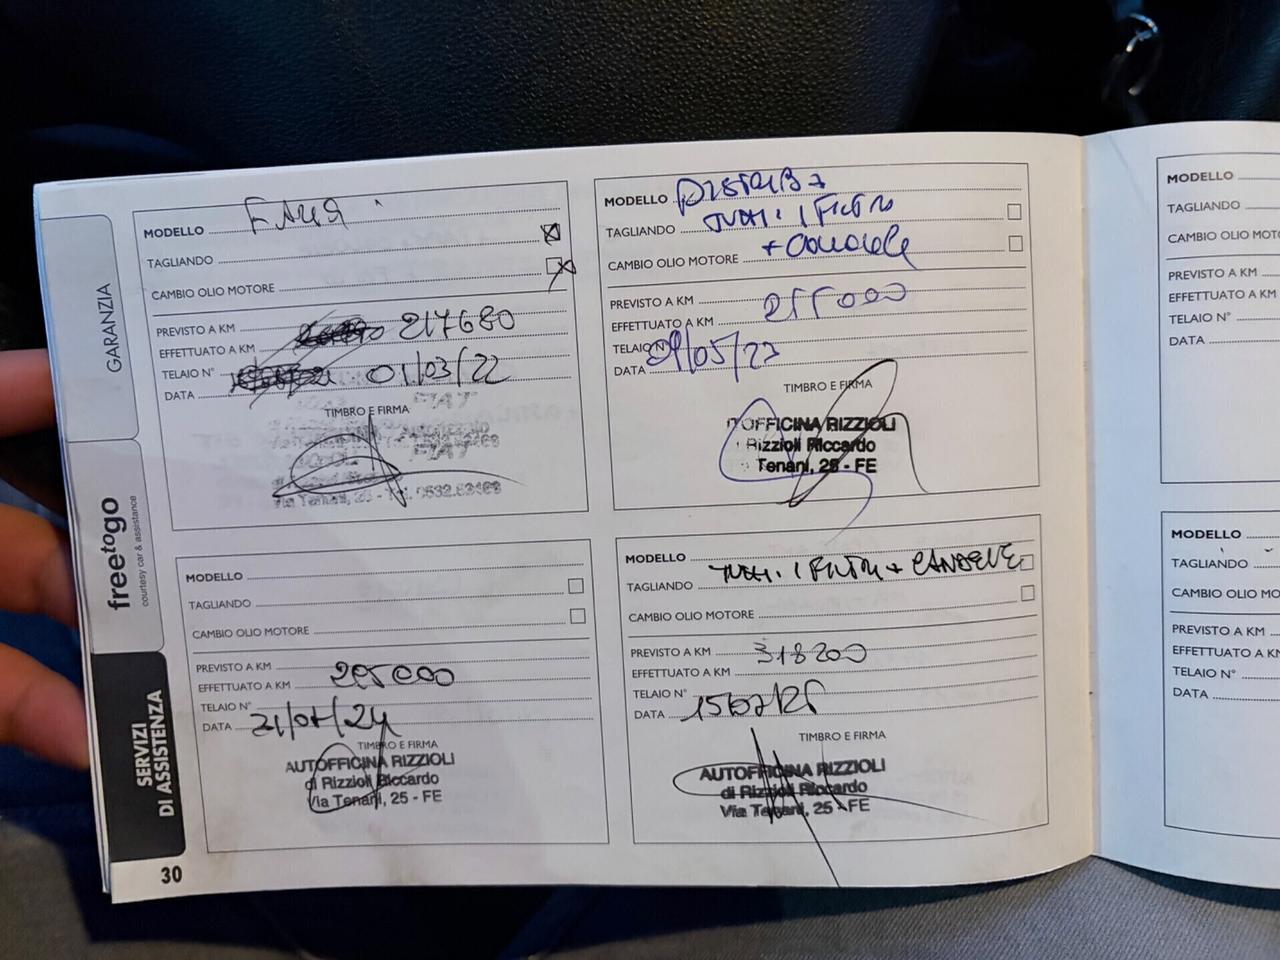 GARANZIA
freetogo
courtesy car & assistance
SERVIZI
DI ASSISTENZA
30
MODELLO
TAGLIANDO
CAMBIO OLIO MOTORE
PREVISTO A KM 217680
EFFETTUATO A KM
TELAIO N° 01/03/22
DATA
TIMBRO E FIRMA
FIAT
FIAT
Via Tenani, 25 - Tel. 0532.
MODELLO
TAGLIANDO TUTTI I FILTRI
+ CANDELE
CAMBIO OLIO MOTORE
PREVISTO A KM
EFFETTUATO A KM 255000
TELAIO N°
DATA /05/23
TIMBRO E FIRMA
TOFFICINA RIZZIOLI
i Rizzioli Riccardo
Tenani, 25 - FE
MODELLO
TAGLIANDO
CAMBIO OLIO MOTORE
PREVISTO A KM
EFFETTUATO A KM 295000
TELAIO N°
DATA
TIMBRO E FIRMA
AUTOFFICINA RIZZIOLI
di Rizzioli Riccardo
Via Tenani, 25 - FE
MODELLO
TAGLIANDO TUTTI I FILTRI + CANDELE
CAMBIO OLIO MOTORE
PREVISTO A KM 318200
EFFETTUATO A KM
TELAIO N°
DATA
TIMBRO E FIRMA
AUTOFFICINA RIZZIOLI
di Rizzioli Riccardo
Via Tenani, 25 - FE
MODELLO
TAGLIANDO
CAMBIO OLIO MOTO
PREVISTO A KM
EFFETTUATO A KM
TELAIO N°
DATA
MODELLO
TAGLIANDO
CAMBIO OLIO MO
PREVISTO A KM
EFFETTUATO A K
TELAIO N°
DATA